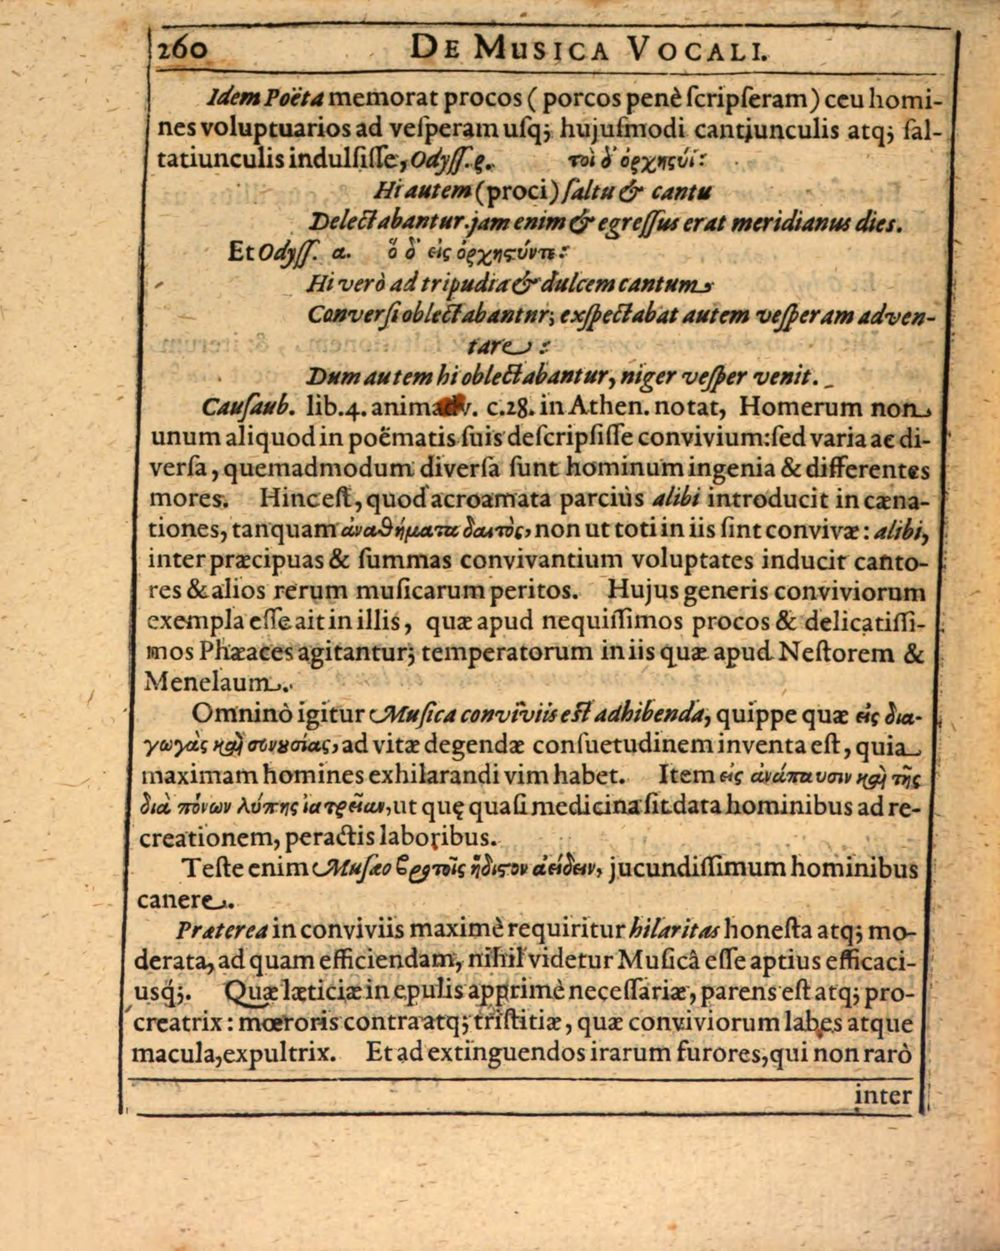 260 DE MUSICA VOCALI.
Idem Poëta memorat procos (porcos penè ſcripſeram) ceu homi-
nes voluptuarios ad veſperam uſq; hujuſmodi cantiunculis atq; ſal-
tatiunculis indulſiſſe, Odyſſ. ϛ. τοὶ δ' ὀρχηςύϊ:
Hi autem (proci) ſaltu & cantu
Delectabantur. jam enim & egreſſus erat meridianus dies.
Et Odyſſ. α. ὃ δ' εἰς ὀρχηςύντε:
Hi verò ad tripudia & dulcem cantum
Converſi oblectabantur; exſpectabat autem veſperam adven-
tare:
Dum autem hi oblectabantur, niger veſper venit.
Cauſaub. lib. 4. c. 28. in Athen. notat, Homerum non
unum aliquod in poëmatis ſuis deſcripſiſſe convivium: ſed varia ac di-
verſa, quemadmodum diverſa ſunt hominum ingenia & differentes
mores. Hinc eſt, quod acroamata parciùs alibi introducit in cæna-
tiones, tanquam ἀναθήματα δαιτὸς, non ut toti in iis ſint convivæ: alibi,
inter præcipuas & ſummas convivantium voluptates inducit canto-
res & alios rerum muſicarum peritos. Hujus generis conviviorum
exempla eſſe ait in illis, quæ apud nequiſſimos procos & delicatiſſi-
mos Phæaces agitantur; temperatorum in iis quæ apud Neſtorem &
Menelaum.
Omninò igitur Muſica conviviis eſt adhibenda, quippe quæ εἰς δια-
γωγὰς καὶ συνουσίας, ad vitæ degendæ conſuetudinem inventa eſt, quia
maximam homines exhilarandi vim habet. Item εἰς ἀνάπαυσιν καὶ τῆς
διὰ πόνων λύπης ἰατρείαν, ut quę quaſi medicina ſit data hominibus ad re-
creationem, peractis laboribus.
Teſte enim Muſæo βροτοῖς ἥδιςον ἀείδειν, jucundiſſimum hominibus
canere.
Præterea in conviviis maximè requiritur hilaritas honeſta atq; mo-
derata, ad quam efficiendam, nihil videtur Muſicâ eſſe aptius efficaci-
usq;. Quæ læticiæ in epulis apprimè neceſſariæ, parens eſt atq; pro-
creatrix: mœroris contra atq; triſtitiæ, quæ conviviorum labes atque
macula, expultrix. Et ad extinguendos irarum furores, qui non rarò
inter